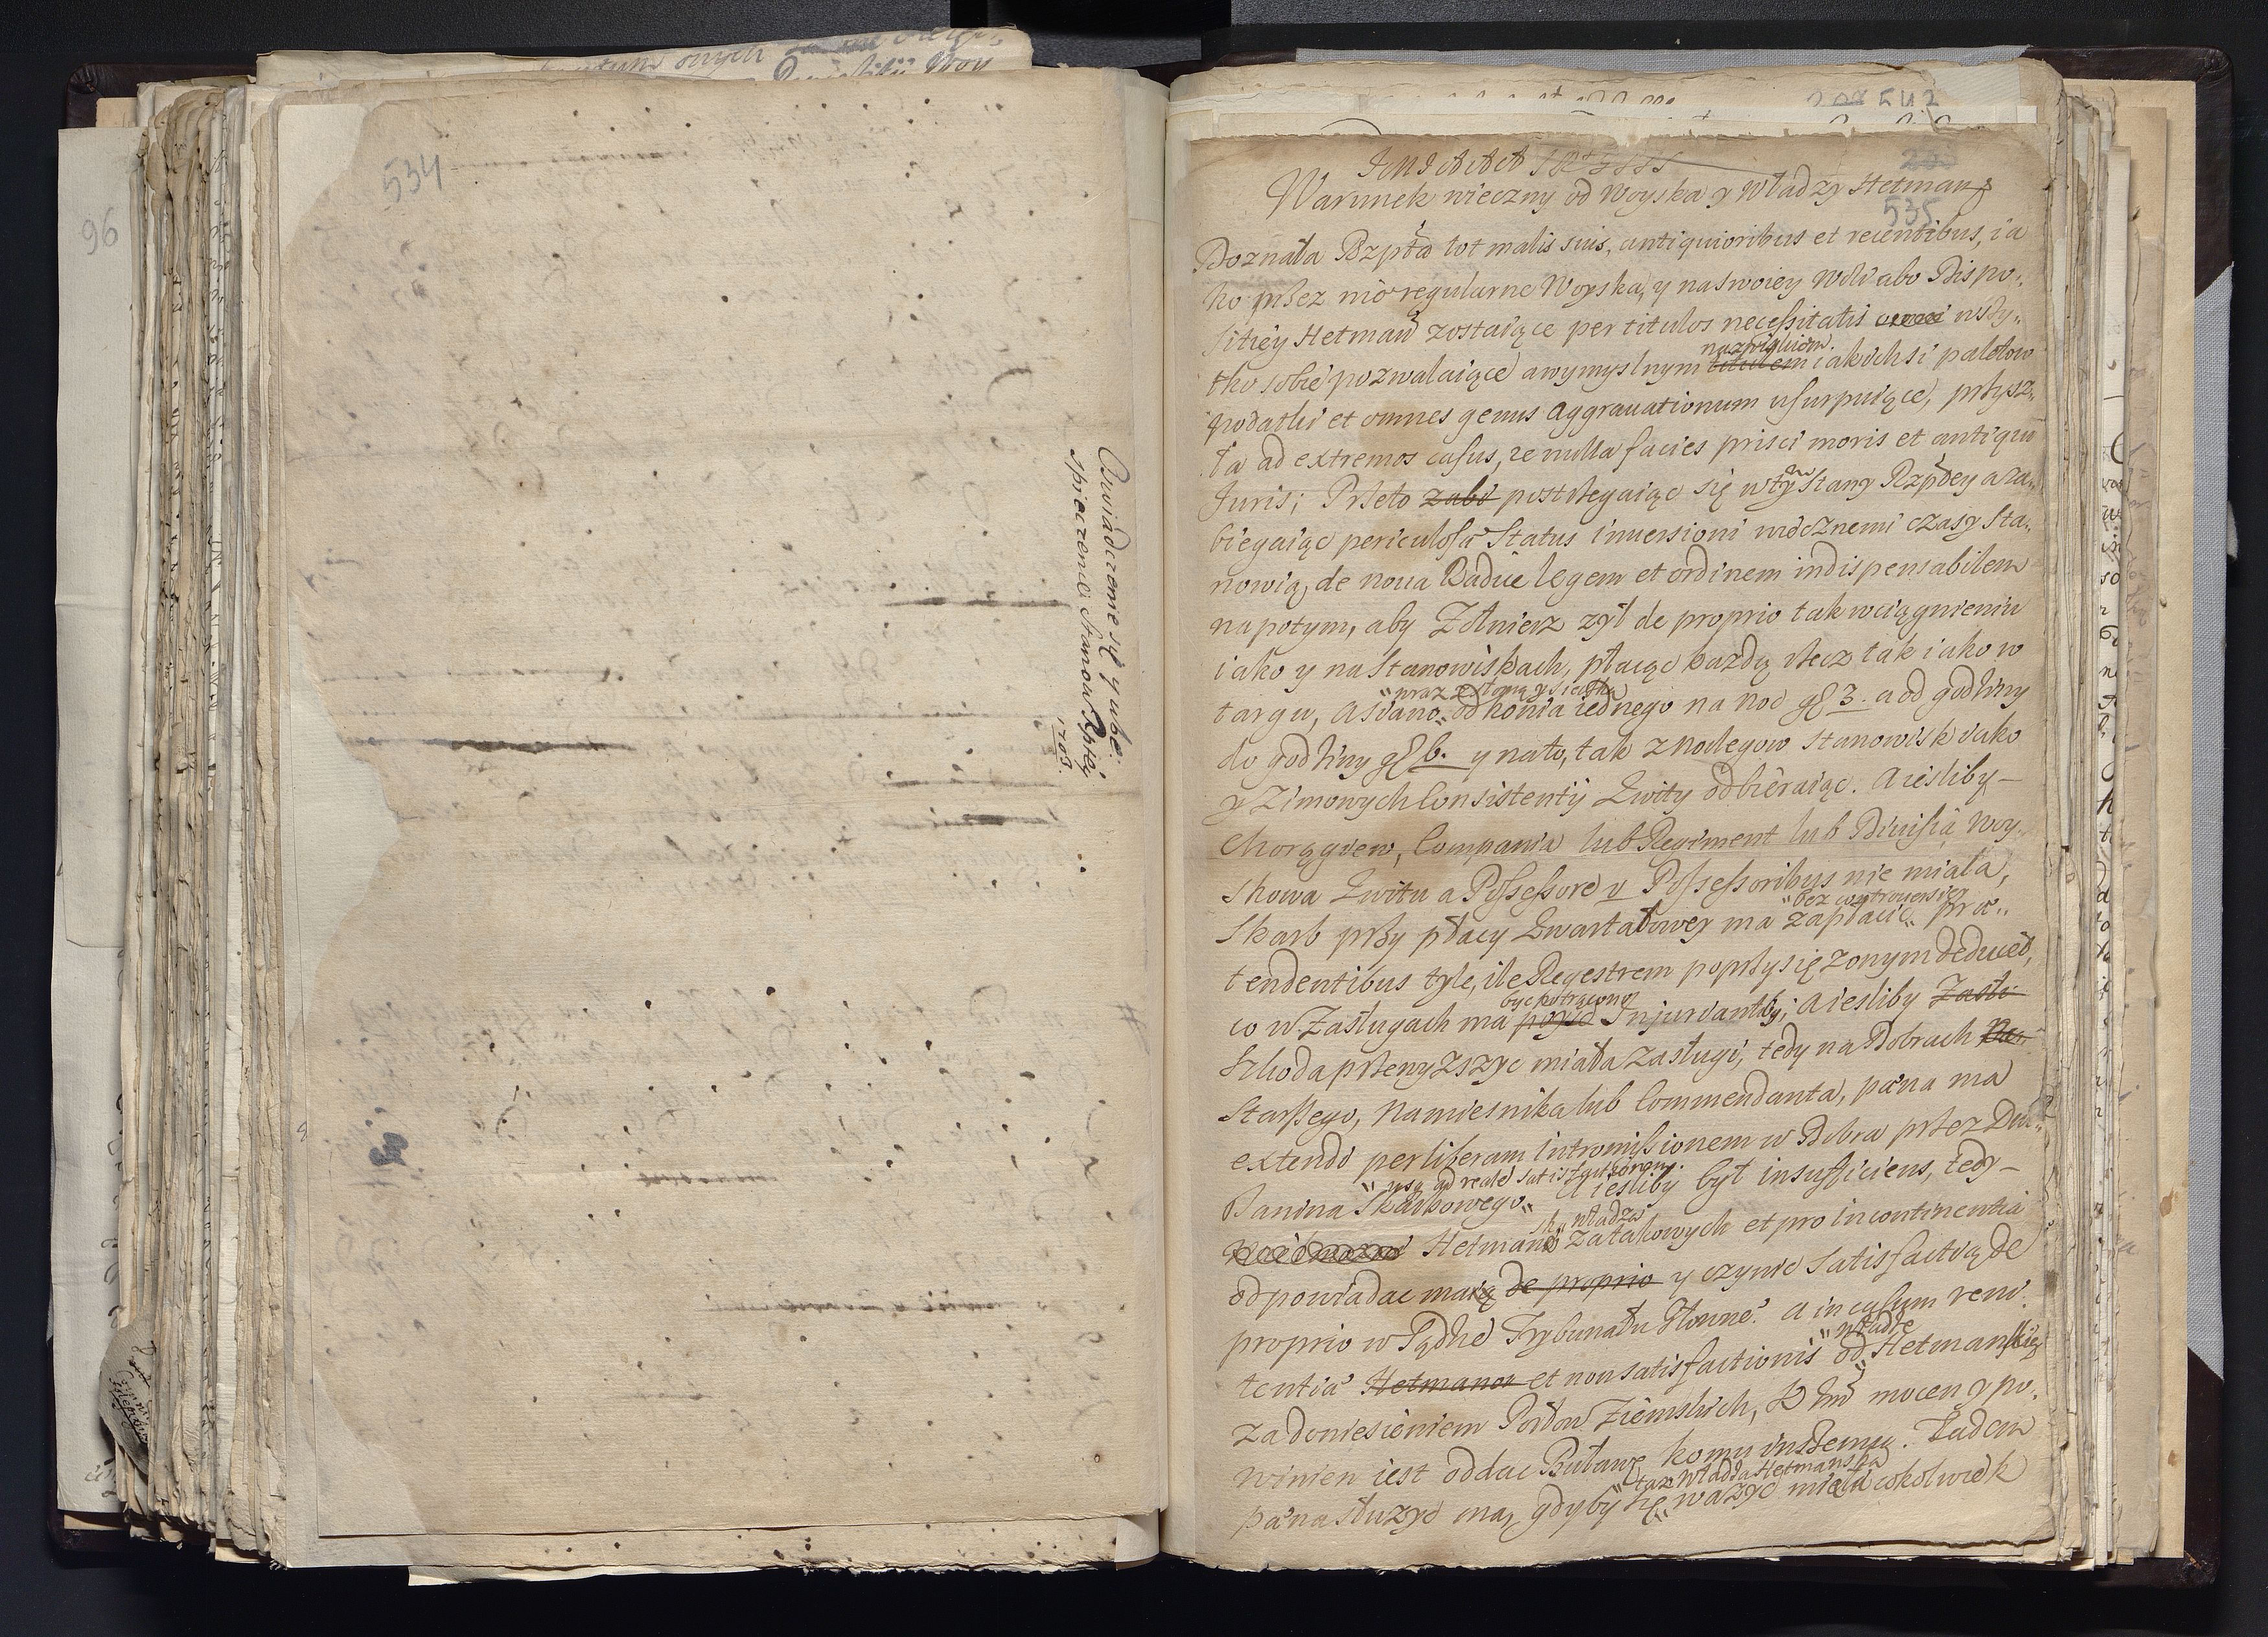 534
96
Oswiadczenie się y ube:
spieczenie Stanow Rptej
1703.
535
Warunek wieczny od Woyska y Władzy Hetmans
Doznała Rzpta tot malis suis, antiquioribus et recentibus, ia
ko przez nie regularne Woyska, y na swoiey Woli abo Dispo„
sitiey Hetmanow zostaiące per titulos necessitatis wszy„
tko sobie pozwalaiące a wymyslnym nazwiskiem iakichsi paletow
podatki et omnes genus aggrauationum usurpuiące, przysz„
ła ad extremos casus, ze nulla facies prisci moris et antiqui
Juris; Przeto zabi postrzegaiąc się w tym Stany Rzptey a za„
biegaiąc periculosa Status inuersioni wiecznemi czasy sta„
nowią, de noua Radice legem et ordinem indispensabilem
napotym, aby Zołnierz zył de proprio tak w ciągnieniu
iako y na Stanowiskach, płacąc kazdą rzecz tak iako w
targu, a siano „wraz z słomą y sieczką„ od konia iednego na noc gr 3. a od godziny
do godziny gr 6. y na to, tak z noclegow stanowisk iako
y Zimowych Consistentij Kwity odbieraiąc. A iesliby
Chorągiew, Compania lub Regiment lub Diuisia Woy„
skowa Kwitu a Possessore v Possessoribus nie miała,
Skarb przy płacy Kwartałowey ma zapłacic „bez controuersiey„ prae„
tendentibus tyle, ile Regestrem poprzysięzonym deducet,
co w Zasługach ma bydz potrącono Injuriantby; A iesliby Zasłu
Szkoda przewyzszyc miała zasługi, tedy na Dobrach
Starszego, Namiesnika lub Commendanta, pæna ma
extendi per liberam intromissionem w Dobra przez Dwo„
rzanina Skarbowego „usq ad reale satisfactionem„. A iesliby był insufficiens, tedy
Hetmansk władza za takowych et pro incontinentia
odpowiadac maią de proprio y czynic satisfactią de
proprio w Sądzie Trybunału Głowne. A in casum reni„
tentiæ Hetmanow et non satisfactionis od „władze„ Hetmanskiey
za doniesieniem Posłow Ziemskich, K Jmc mocen y po„
winien iest oddac Buławę komu inszemu. Ta dem
pæna służyc ma, gdyby się „taz władza Hetmanska„ wazyc miała cokolwiek